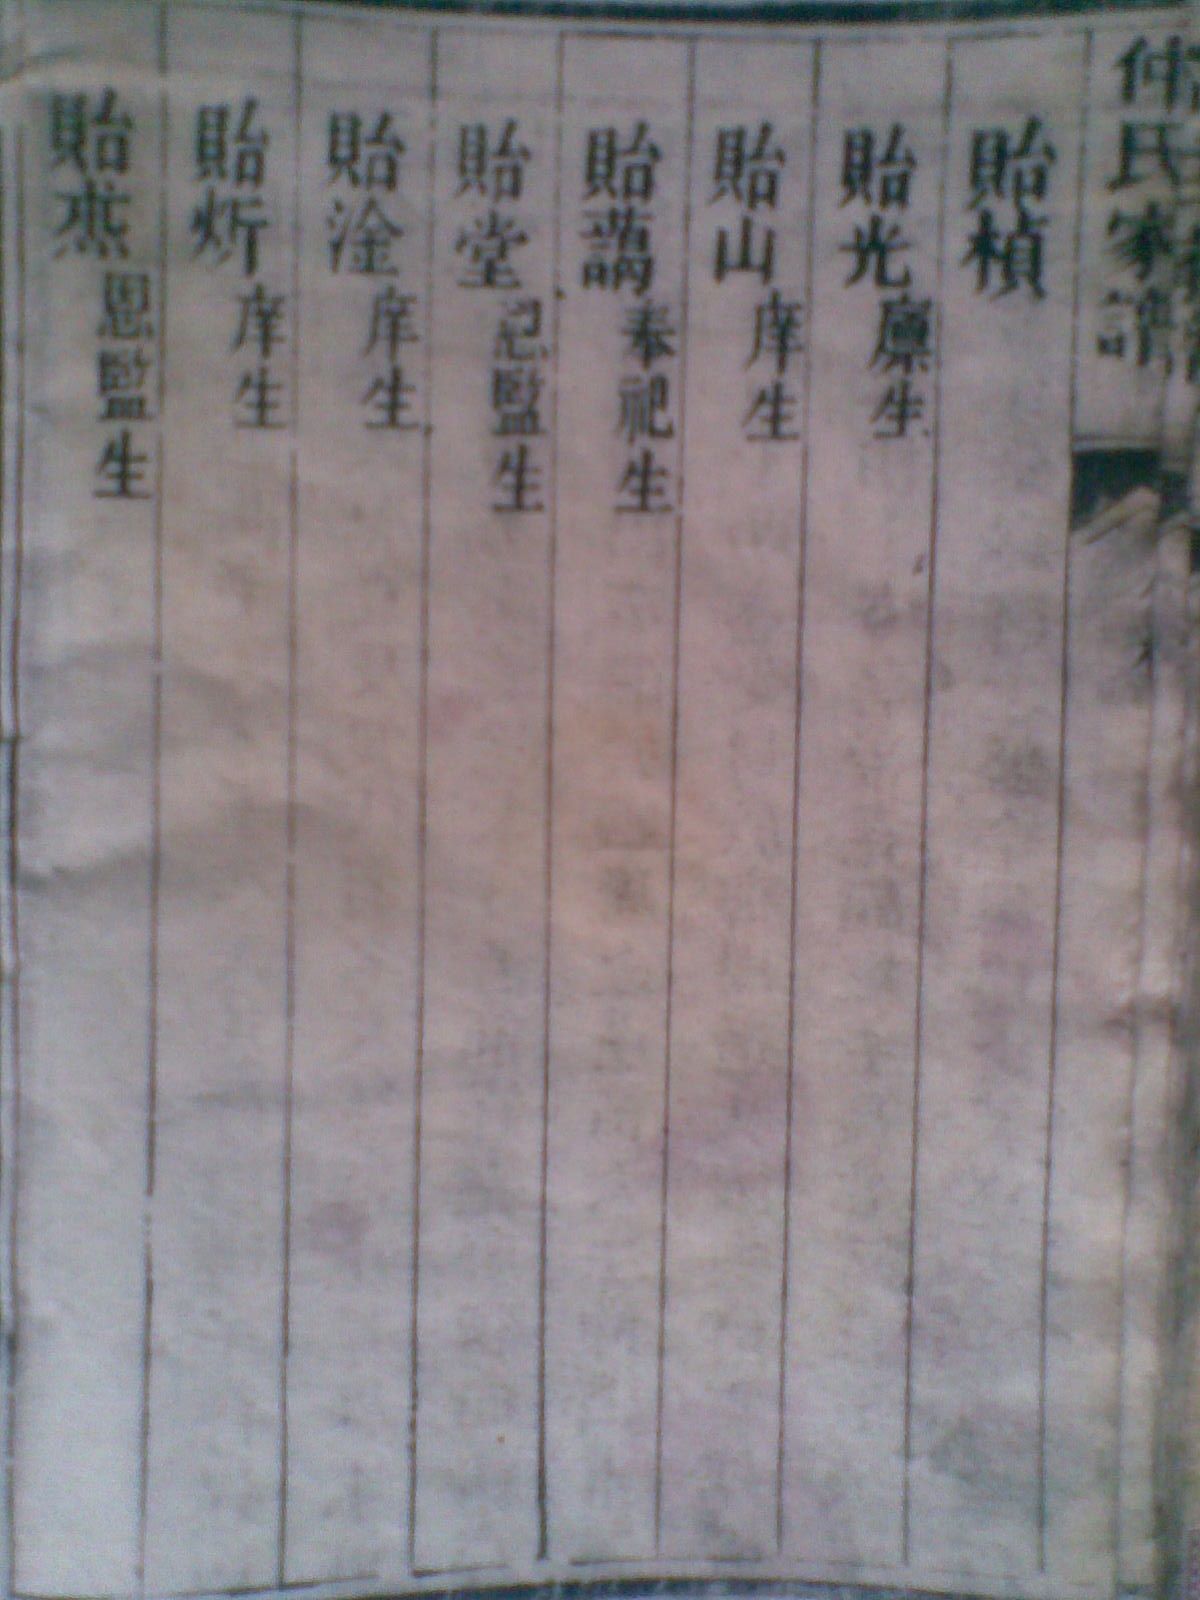 仲氏家譜
貽楨
貽光 廩生
貽山 庠生
貽藹 奉祀生
貽堂 恩監生
貽淦 庠生
貽炘 庠生
貽燕 恩監生